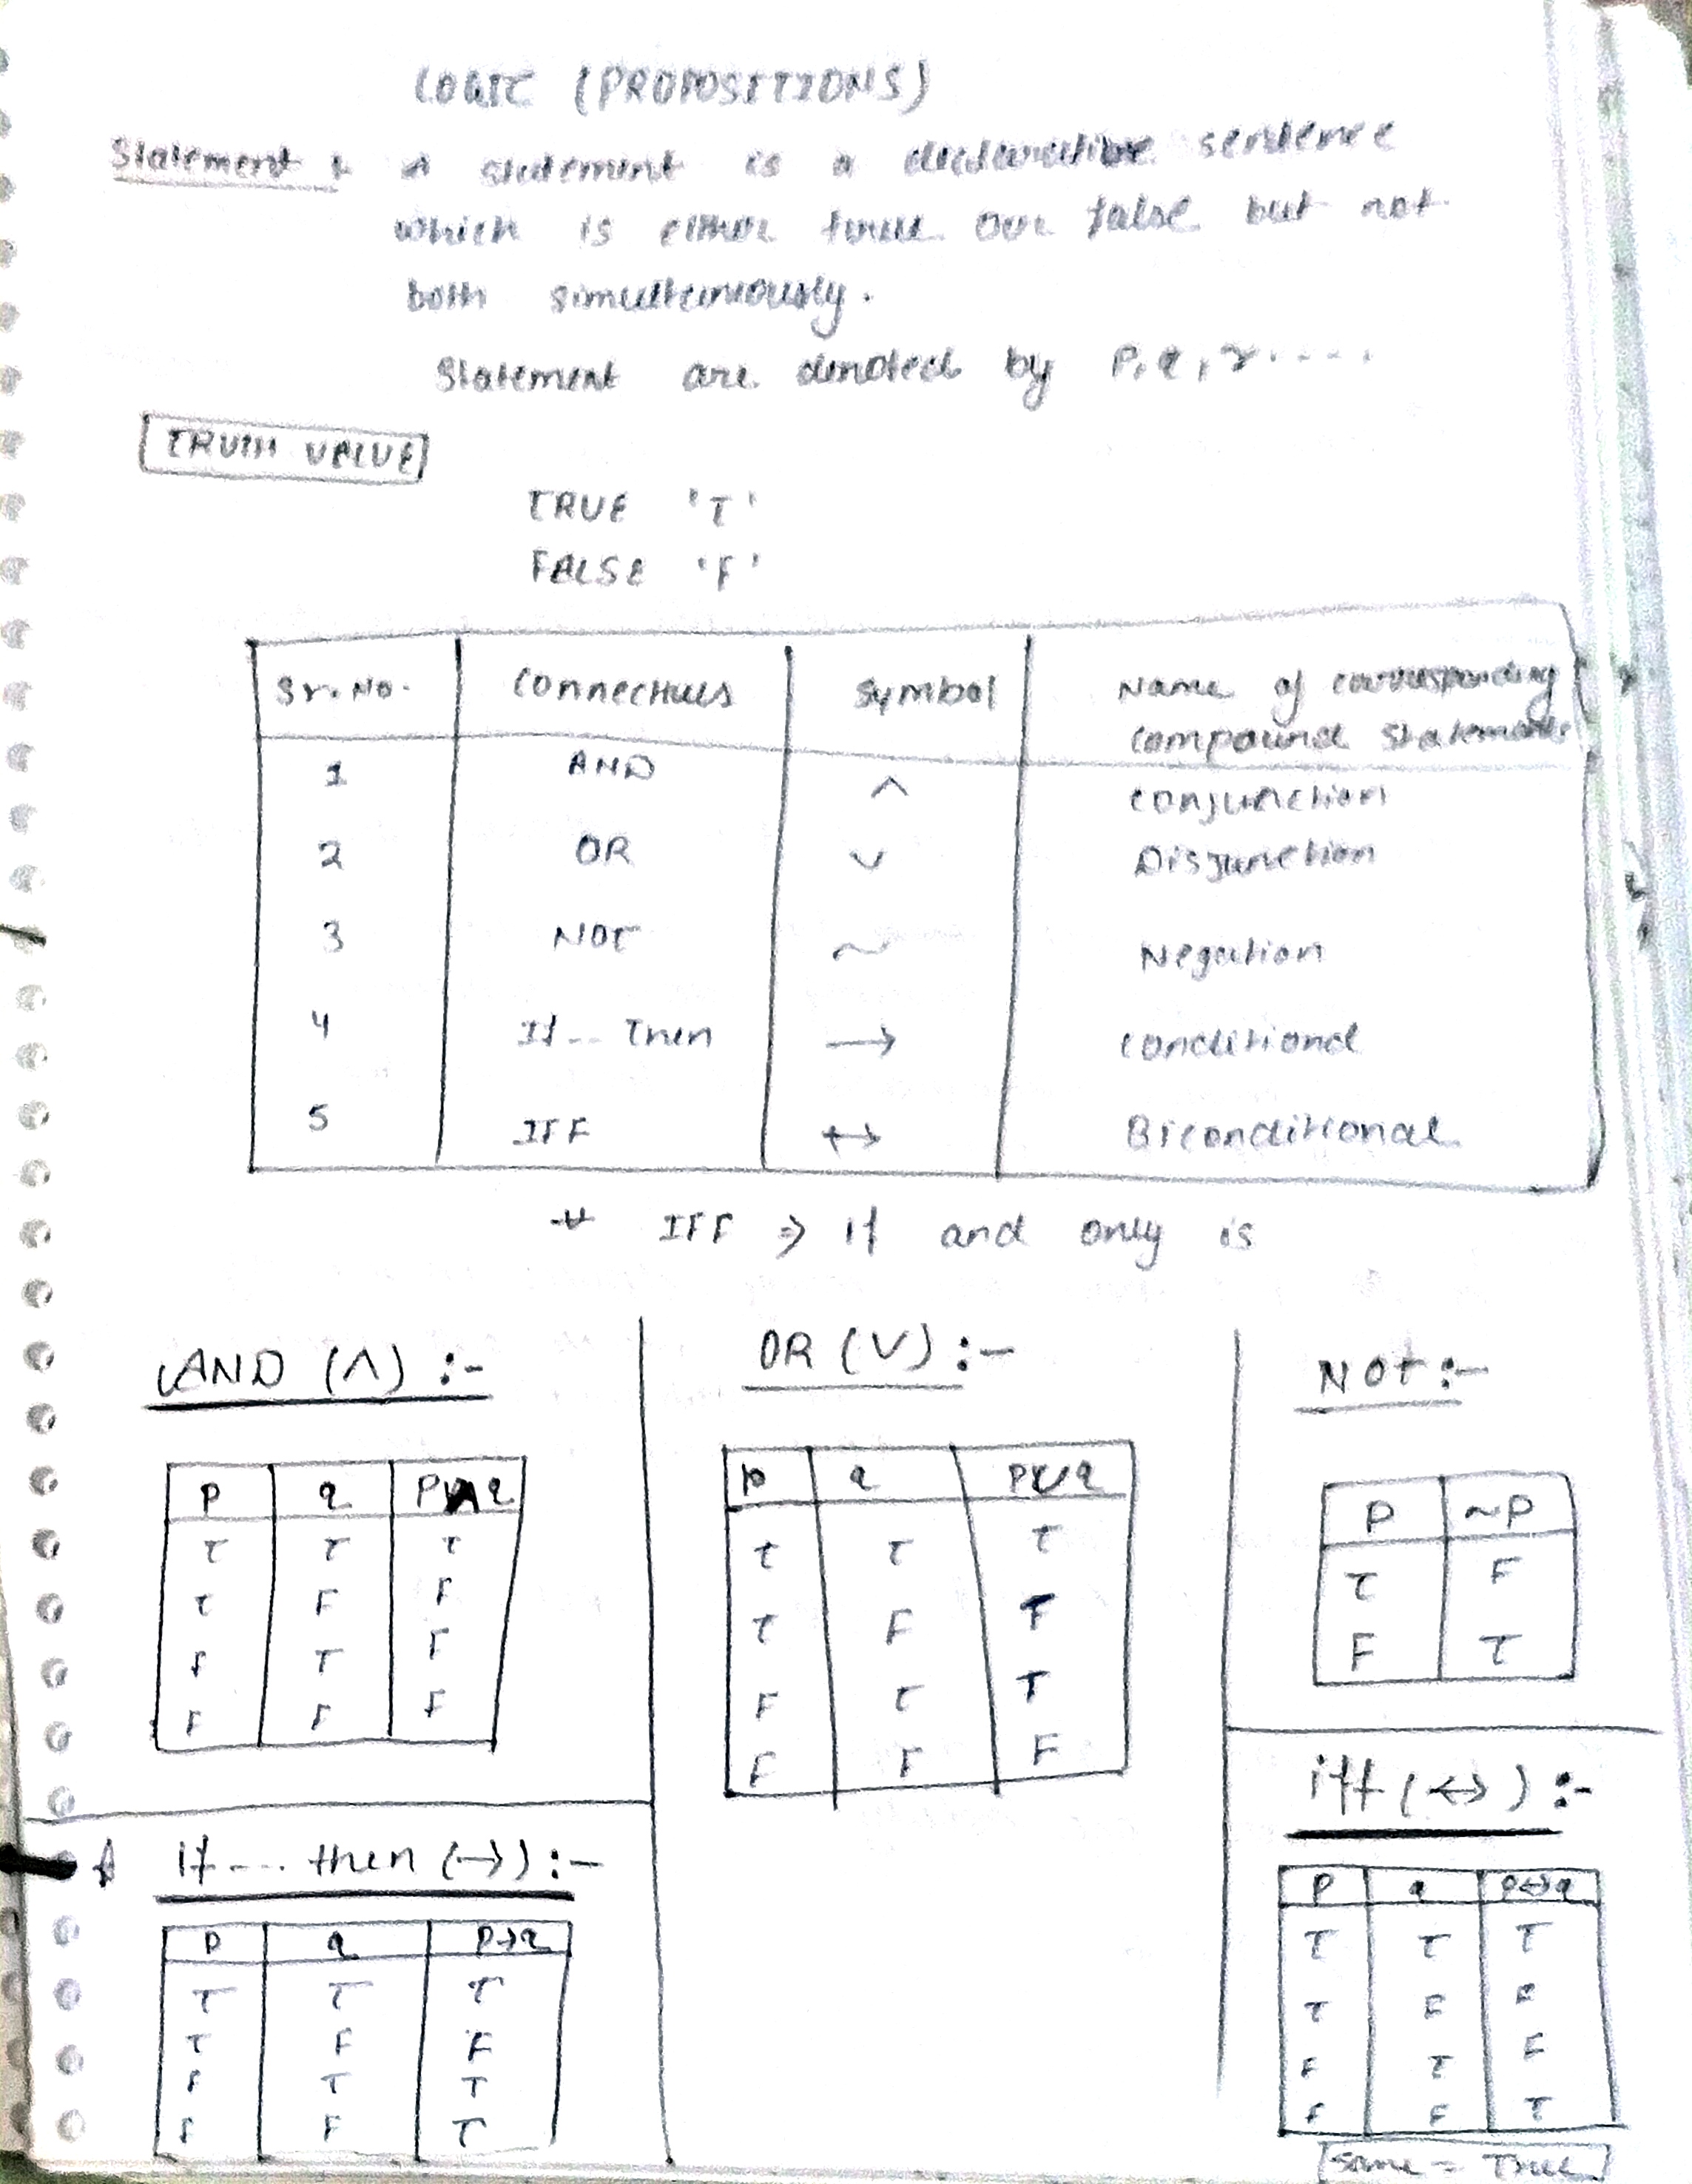 LOGIC (PROPOSITIONS)
Statement : A statement is a declarative sentence
which is either true or false but not
both simultaneously.
Statement are denoted by P, q, r.....
TRUTH VALUE
TRUE 'T'
FALSE 'F'
Sr. No. Connectives Symbol Name of corresponding
compound statements
1 AND ∧ conjunction
2 OR ∨ Disjunction
3 NOT ~ Negation
4 If... Then → conditional
5 IFF ↔ Biconditional
* IFF ⇒ if and only is
AND (∧) :-
P q P∧q
T T T
T F F
F T F
F F F
OR (∨) :-
p q P∨q
T T T
T F T
F T T
F F F
NOT :-
P ~P
T F
F T
if .... then (→) :-
P q P→q
T T T
T F F
F T T
F F T
iff (↔) :-
P q P↔q
T T T
T F F
F T F
F F T
Same = True